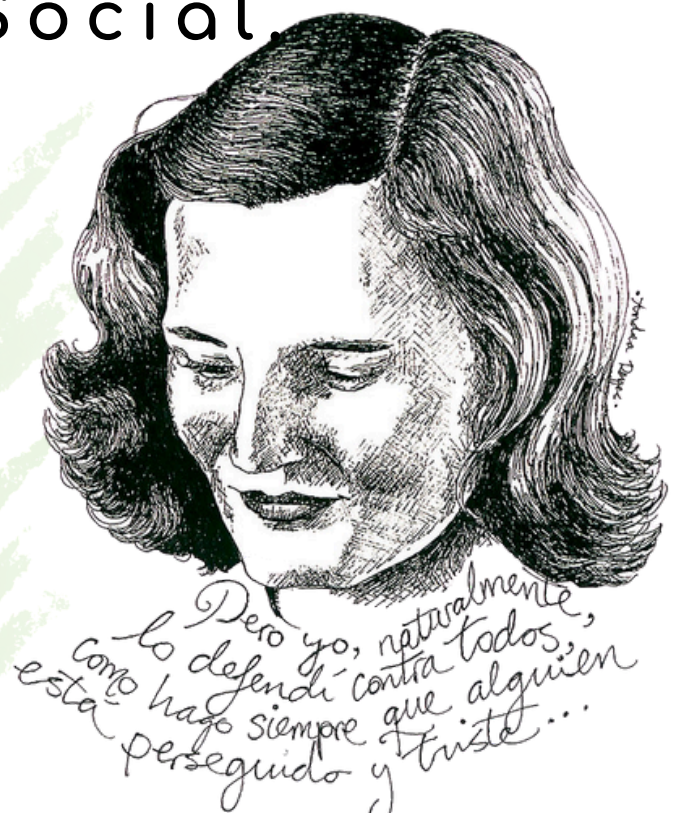 Social.
Pero yo, naturalmente,
lo defendí contra todos,
como hago siempre que alguien
está perseguido y triste...